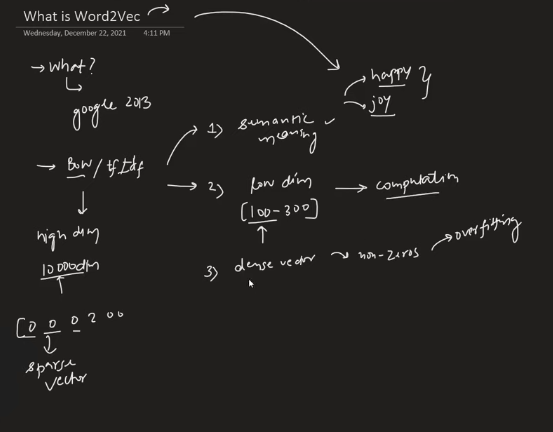 What is Word2Vec
Wednesday, December 22, 2021 4:11 PM
→ What?
google 2013
→ BoW / tfIdf
high dim
10000dim
[0 0 0 2 0 0
sparse
vector
1) semantic
meaning
happy }
joy
2) low dim → computation
[100-300]
3) dense vector → non-zeros → overfitting